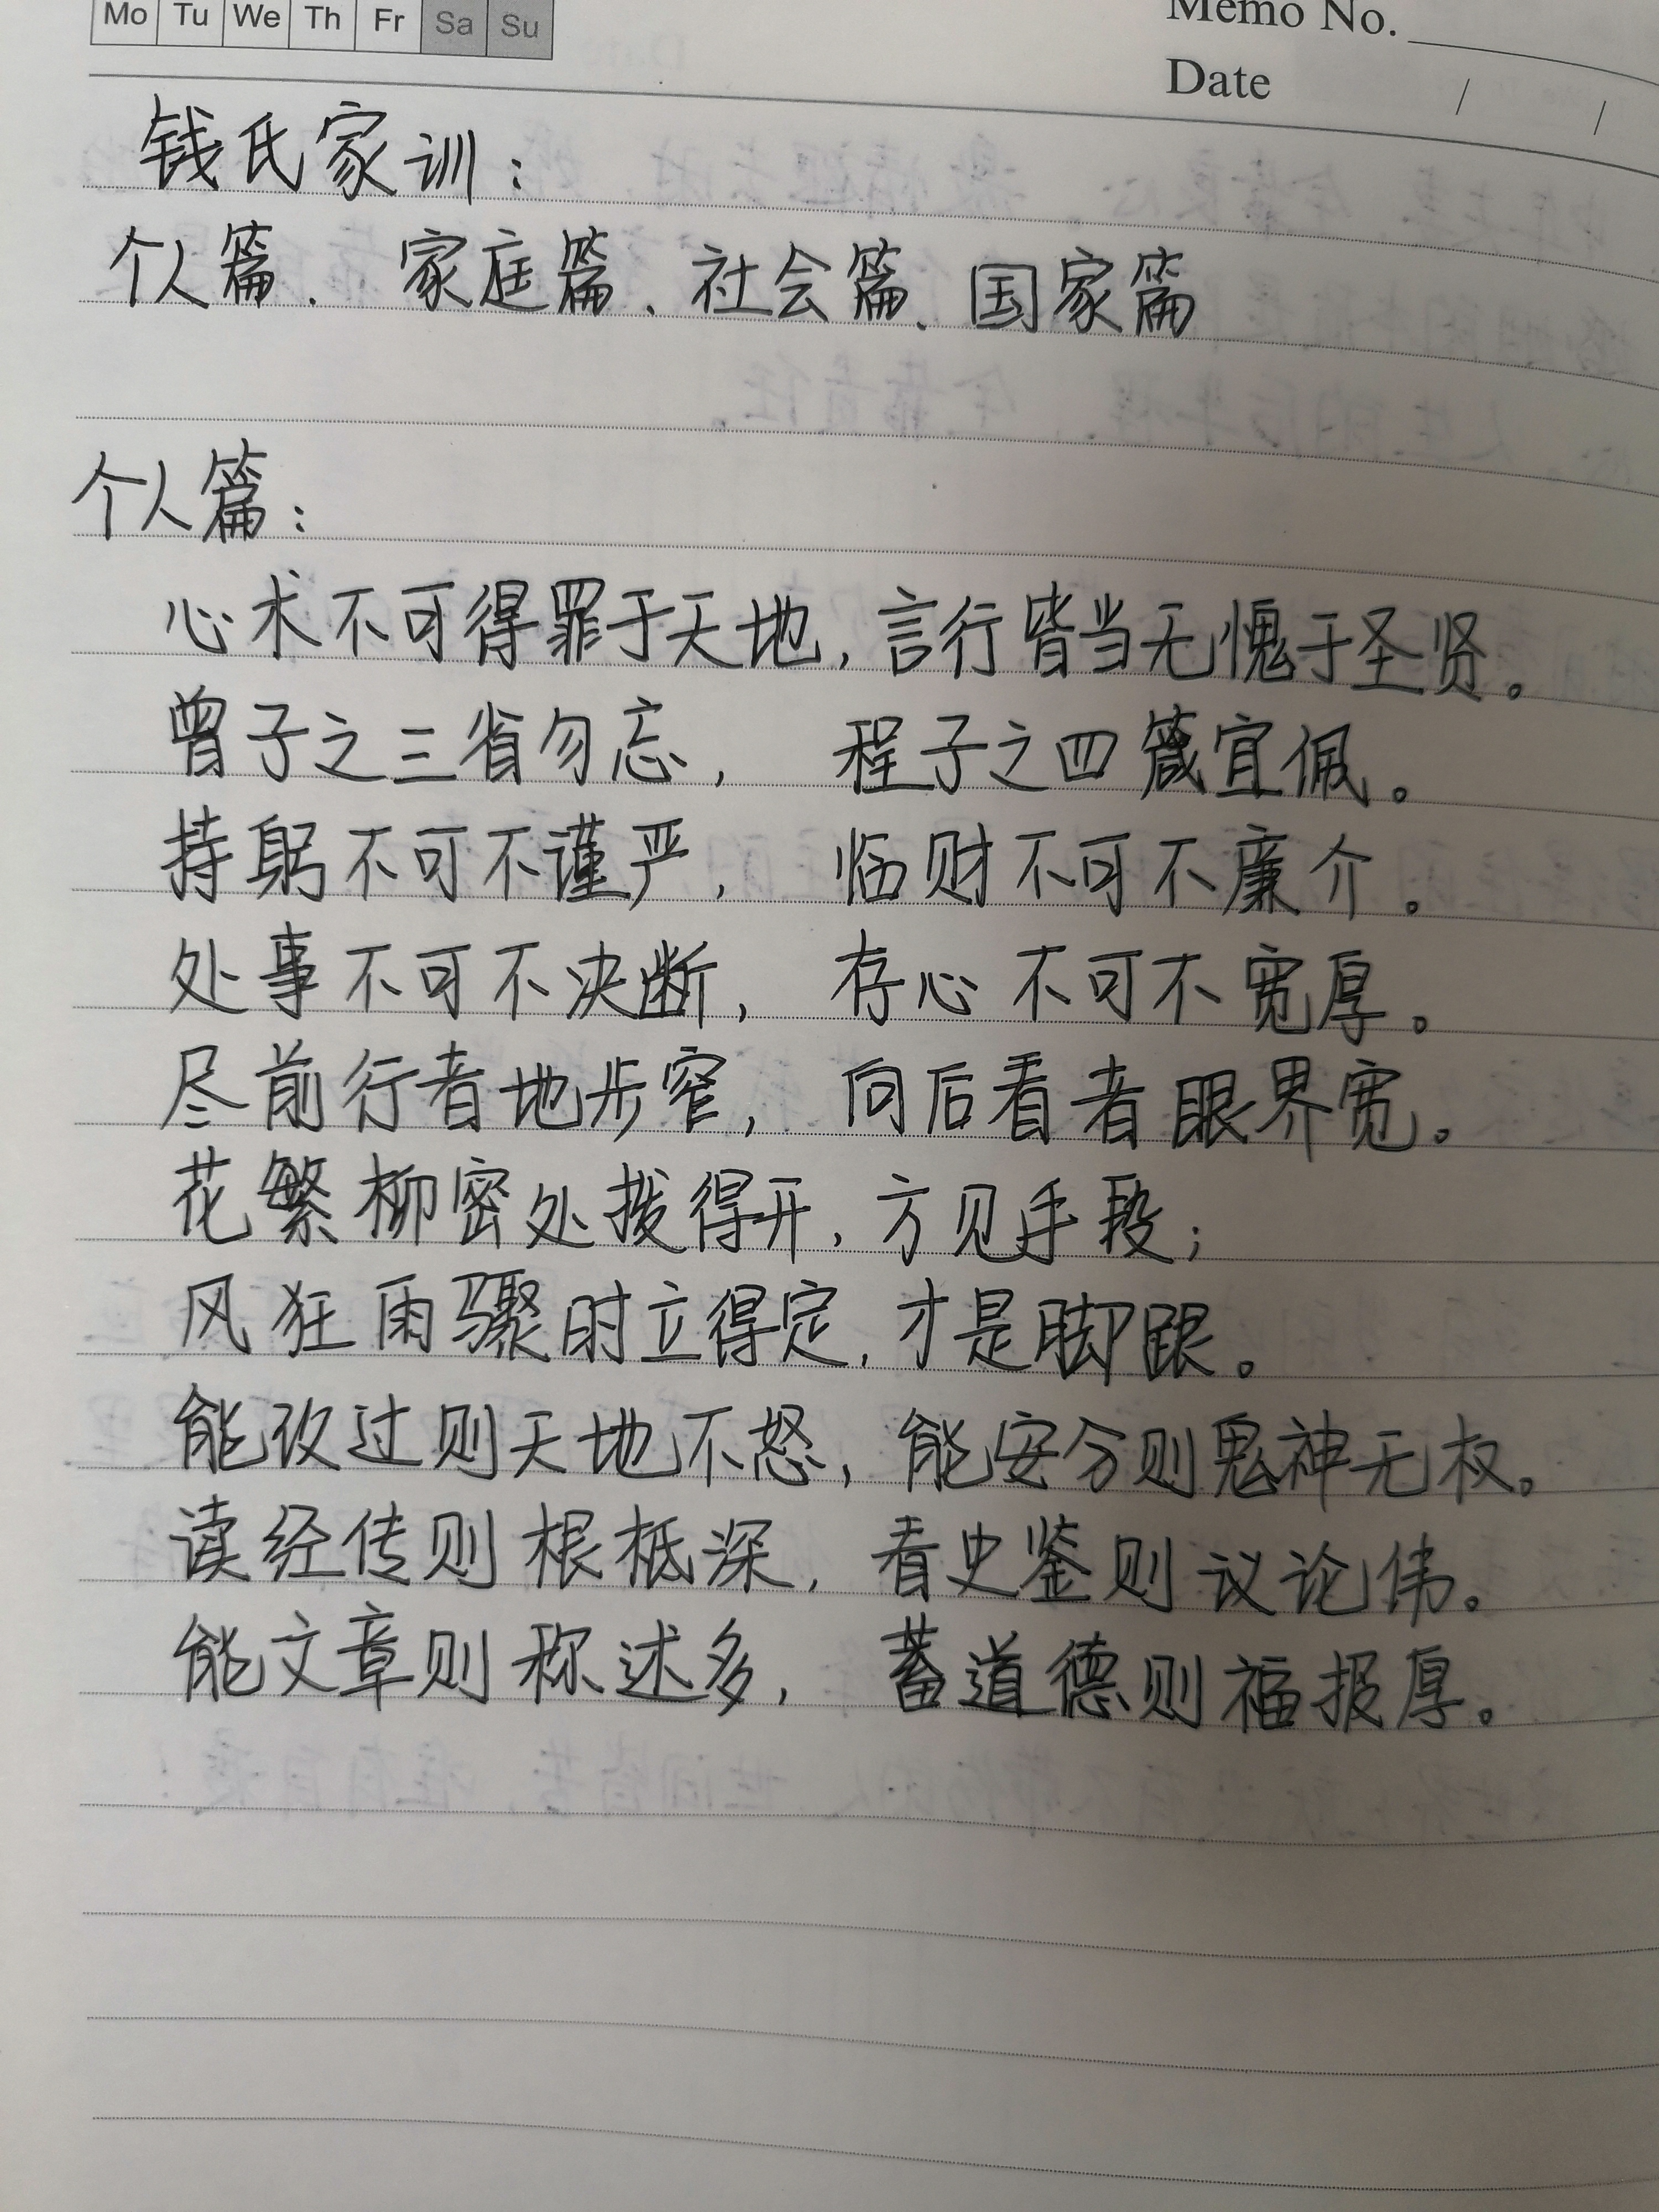 Mo Tu We Th Fr Sa Su
Memo No.
Date / /
钱氏家训：
个人篇、家庭篇、社会篇、国家篇
个人篇：
心术不可得罪于天地，言行皆当无愧于圣贤。
曾子之三省勿忘，程子之四箴宜佩。
持躬不可不谨严，临财不可不廉介。
处事不可不决断，存心不可不宽厚。
尽前行者地步窄，向后看者眼界宽。
花繁柳密处拨得开，方见手段；
风狂雨骤时立得定，才是脚跟。
能改过则天地不怒，能安分则鬼神无权。
读经传则根柢深，看史鉴则议论伟。
能文章则称述多，蓄道德则福报厚。